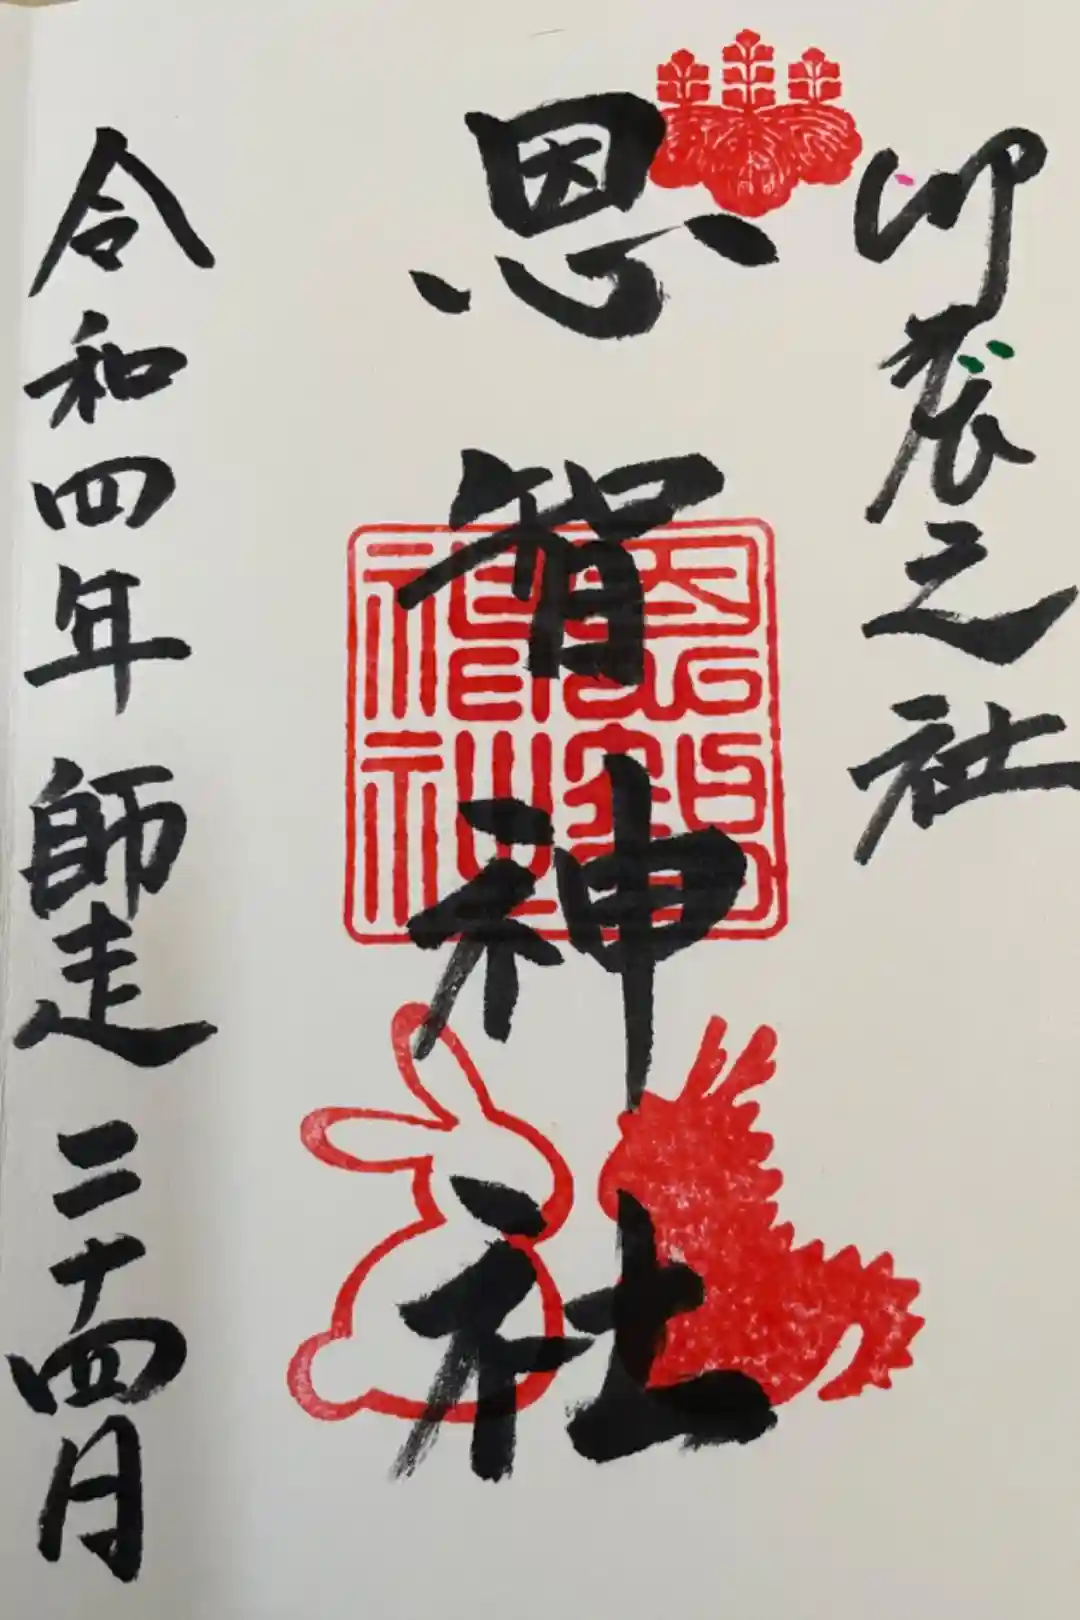 卯辰之社
恩智神社
恩智神社
令和四年師走二十四日